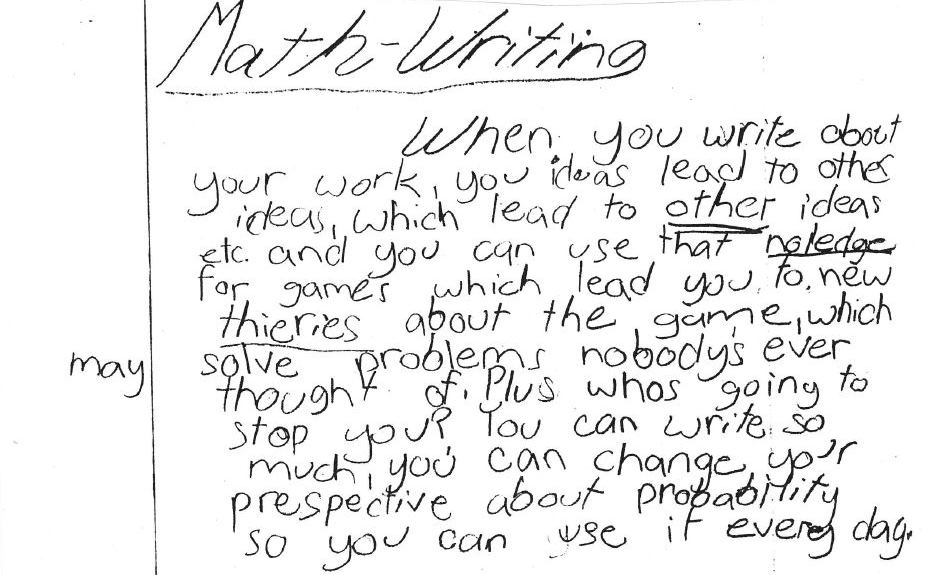 Math-Writing
When you write about
your work, you ideas lead to other
ideas, which lead to other ideas
etc. and you can use that noledge
for games which lead you to new
thieries about the game, which
may solve problems nobody's ever
thought of. Plus whos going to
stop you? You can write so
much, you can change yo'r
prespective about probability
so you can use it every day.